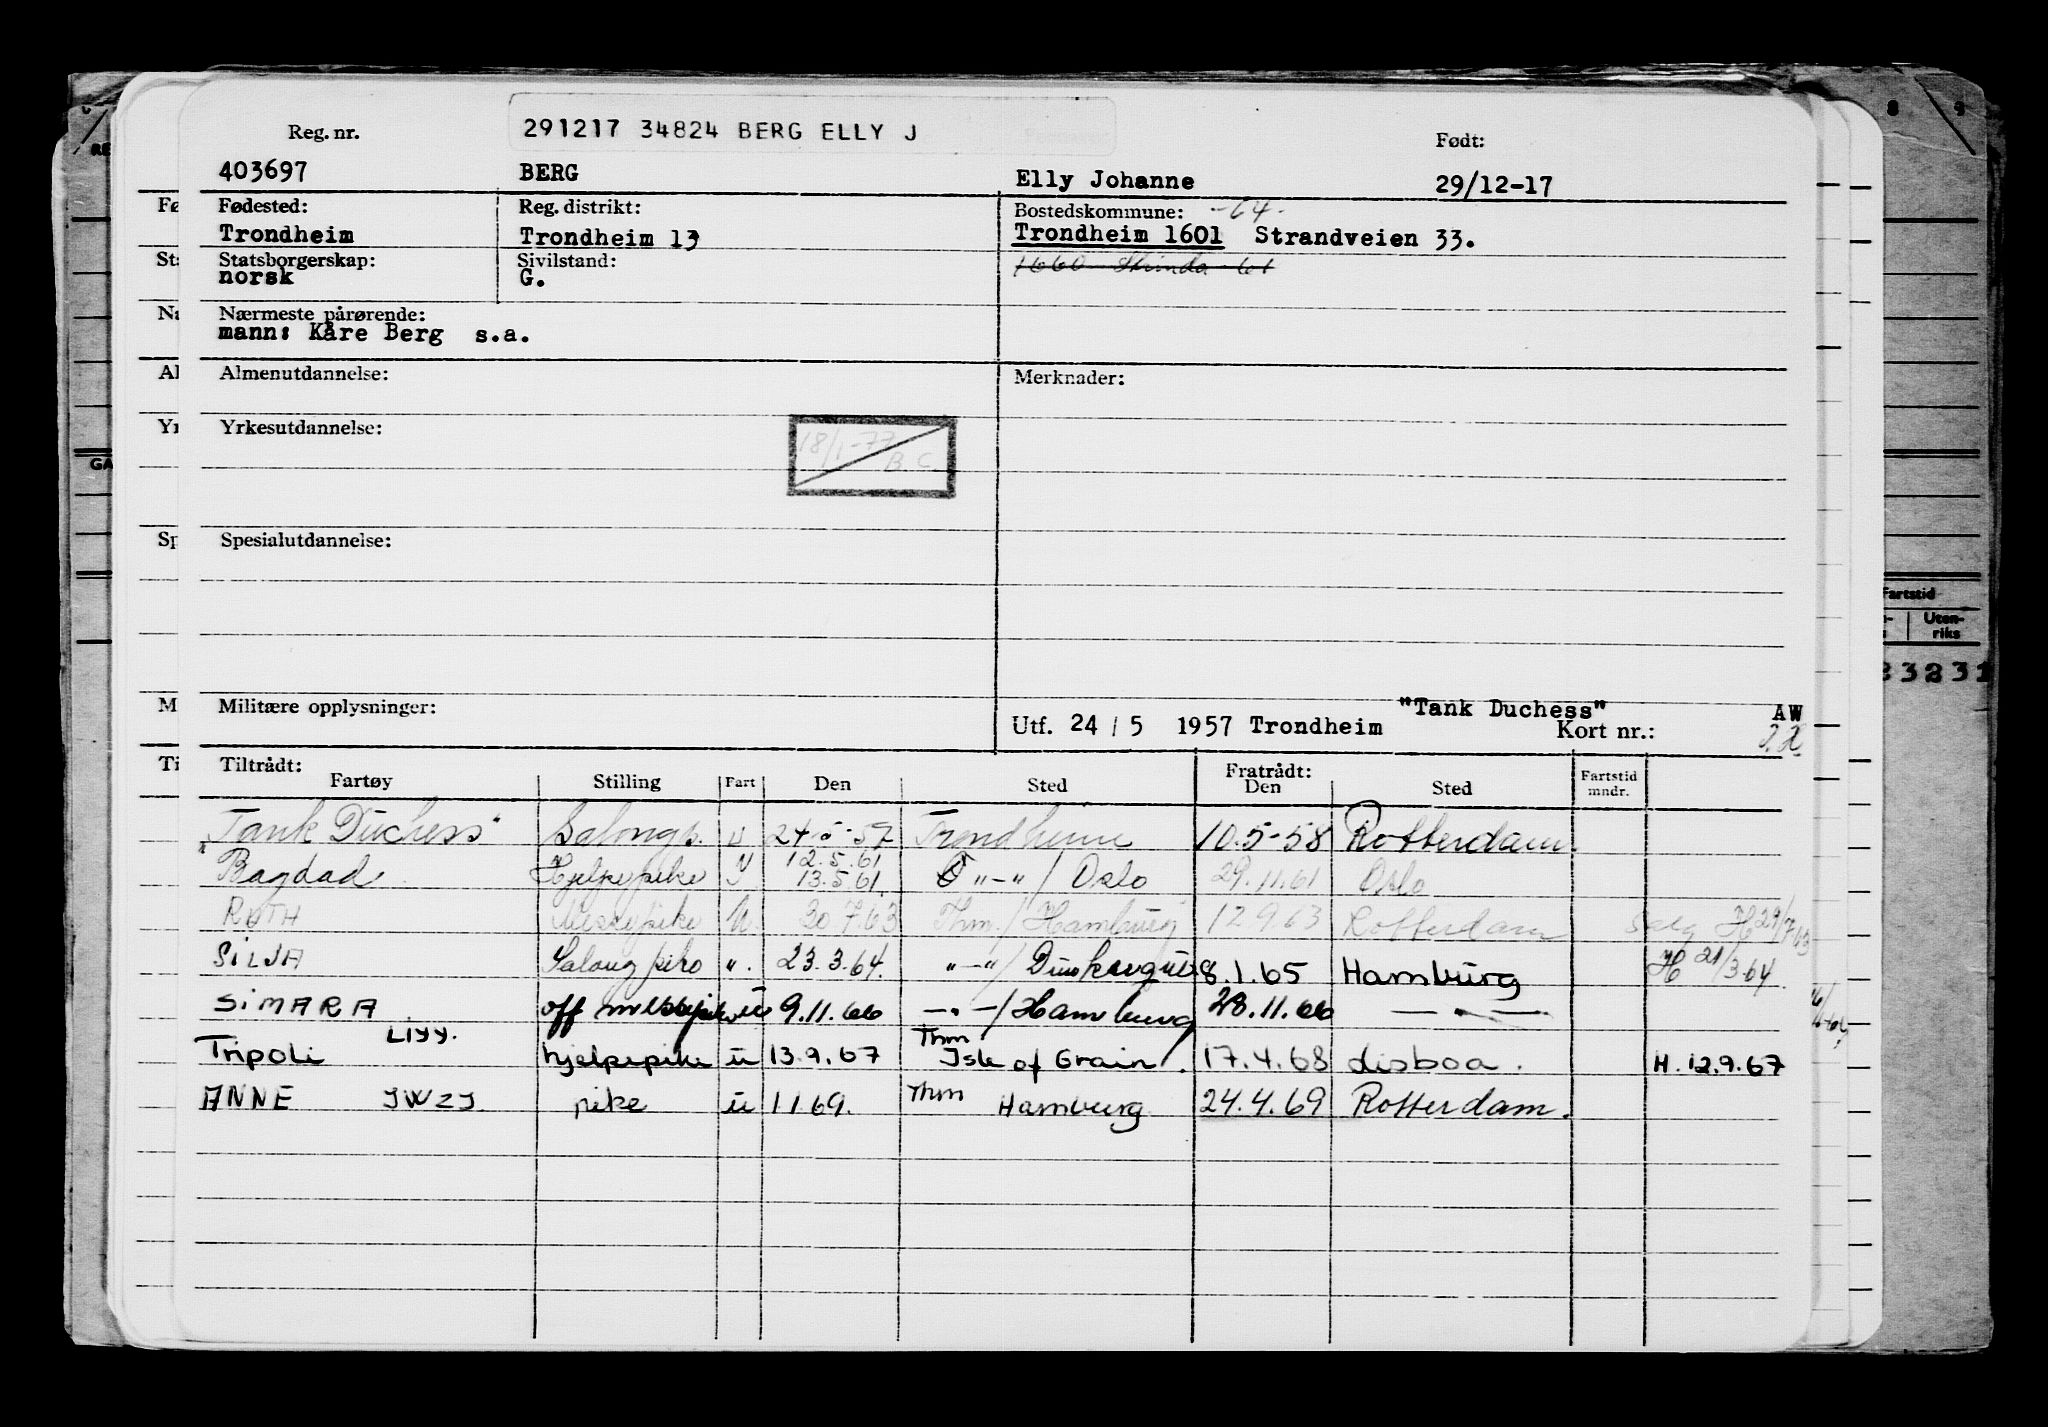 291217 34824 BERG ELLY J
Reg. nr. Født:
403697 BERG Elly Johanne 29/12-17
Fødested: Reg. distrikt: Bostedskommune: -64-
Trondheim Trondheim 13 Trondheim 1601 Strandveien 33.
Statsborgerskap: Sivilstand: 1660 Strinda 61
norsk G.
Nærmeste pårørende:
mann: Kåre Berg s.a.
Almenutdannelse: Merknader:
Yrkesutdannelse:
18/1-77
B C
Spesialutdannelse:
Militære opplysninger:
"Tank Duchess" AW
Utf. 24 / 5 1957 Trondheim Kort nr.:
Tiltrådt: Fratrådt:
Fartøy Stilling Fart Den Sted Den Sted Fartstid mndr.
"Tank Duchess" Salongp. U 24.5-57 Trondheim 10.5-58 Rotterdam
12.5.61
Bagdad Hjelpepike 13.5.61 "-" / Oslo 29.11.61 Oslo
RUTH Messepike U. 30.7.63 Thm. / Hamburg 12.9.63 Rotterdam Salg H 29/7-63
SILJA Salongpike ". 23.3.64. "-" / Dunkerque 8.1.65 Hamburg H 21/3 64.
SIMARA off messepike u 9.11.66 -"- / Hamburg 28.11.66 — " —
LIYY. Thm
Tripoli hjelpepike u 13.9.67 Isle of Grain. 17.4.68 Lisboa. H. 12.9.67
ANNE JWZJ pike u 1 1 69. Thm Hamburg 24.4.69 Rotterdam.
Fartstid
Uten-
riks